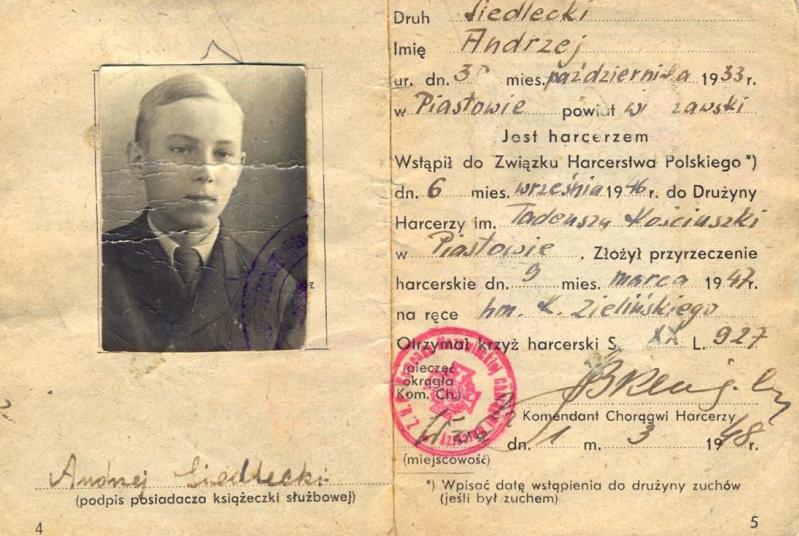 Andrzej Siedlecki
(podpis posiadacza książeczki służbowej)
4
Druh Siedlecki
Imię Andrzej
ur. dn. 30 mies. października 1933 r.
w Piastowie powiat w zawski
Jest harcerzem
Wstąpił do Związku Harcerstwa Polskiego*)
dn. 6 mies. września 1946 r. do Drużyny
Harcerzy im. Tadeusza Kościuszki
w Piastowie. Złożył przyrzeczenie
harcerskie dn. 9 mies. marca 1947 r.
na ręce hm. K. Zielińskiego
Otrzymał krzyż harcerski S. XX L. 927
(pieczęć
okrągła
Kom. Ch.)
Komendant Chorągwi Harcerzy
dn. 1 m. 3 1948 r.
(miejscowość)
*) Wpisać datę wstąpienia do drużyny zuchów
(jeśli był zuchem)
5